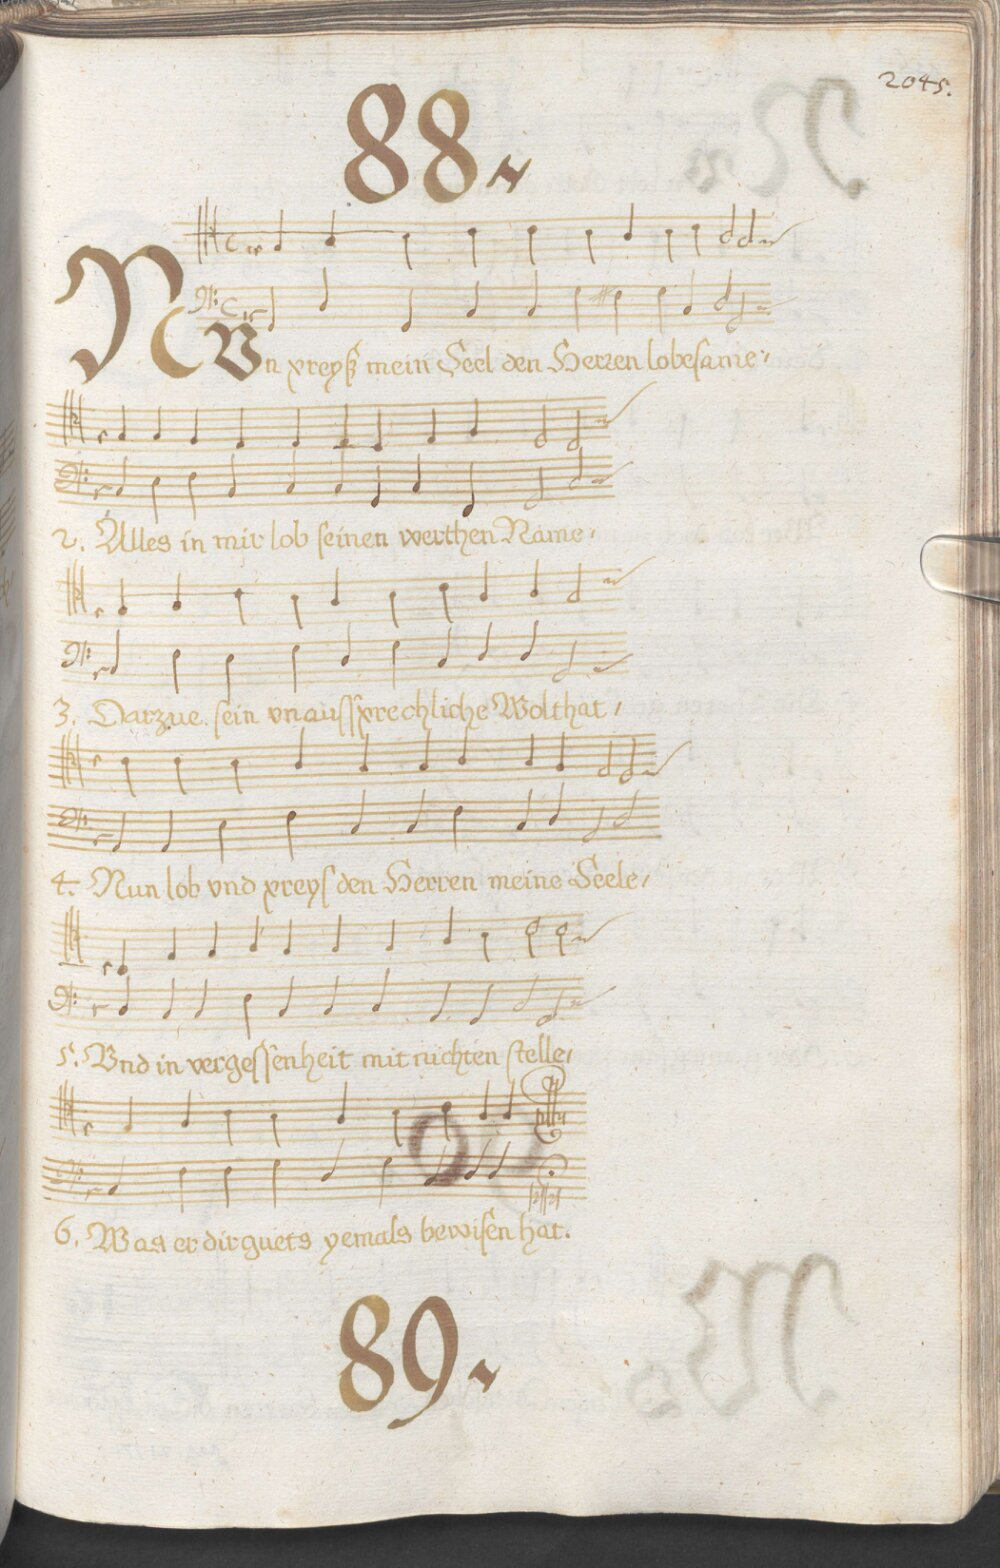 2045.
88.
NVn preyß mein Seel den Herren lobesame,
2. Alles in mir lob seinen werthen Name,
3. Darzue sein vnaussprechliche Wolthat,
4. Nun lob vnd preys den Herren meine Seele,
5. Vnd in vergessenheit mit nichten stelle,
6. Was er dir guets yemals bewisen hat.
89.